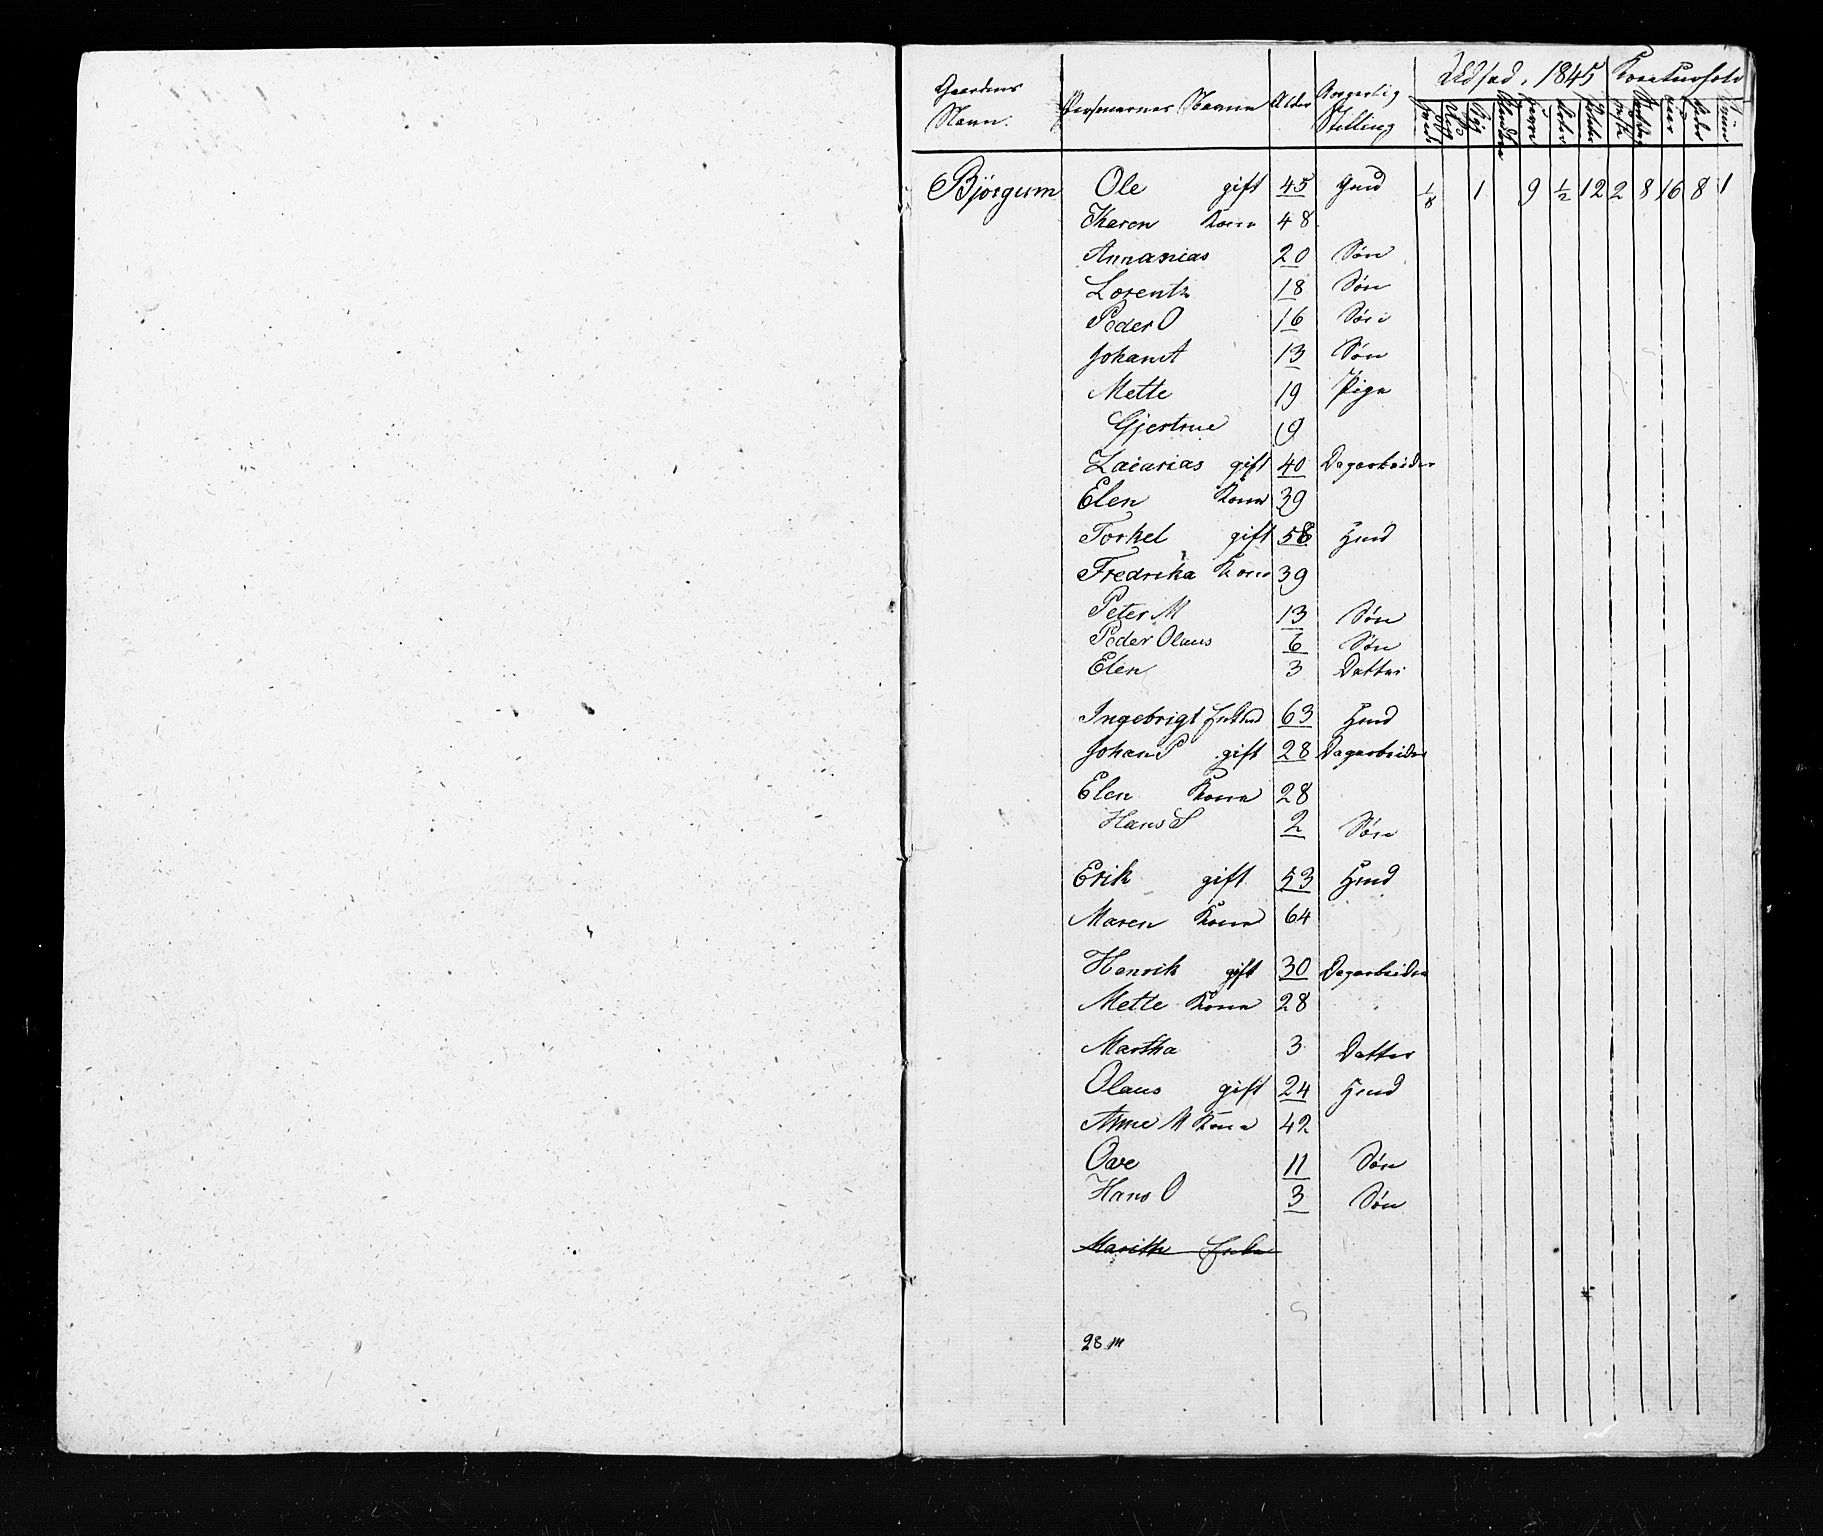 Udsæd. 1845 Kreaturhold
Gaardens Navn. Personernes Navne Alder Borgerlig Stilling Hvede Rug Byg Havre Erter Poteter Heste Faar Sviin
Bjørgum Ole gift 45 Gmd 1/8 1 9 1/2 12 2 8 16 8 1
Karen Kone 48
Annanias 20 Søn
Lorentz 18 Søn
Peder O 16 Søn
Johan A 13 Søn
Mette 19 Pige
Gjertrue 19
Zacarias gift 40 Dagarbeider
Elen Kone 39
Torkel gift 58 Hmd
Fredrika Kone 39
Peter M 13 Søn
Peder Olaus 6 Søn
Elen 3 Datter
Ingebrigt Enkmd 63 Hmd
Johan P gift 28 Dagarbeider
Elen Kone 28
Hans S 2 Søn
Erik gift 53 Hmd
Maren Kone 64
Henrik gift 30 Dagarbeider
Mette Kone 28
Martha 3 Datter
Olaus gift 24 Hmd
Anne M Kone 42
Ove 11 Søn
Hans O 3 Søn
Marith Enke
28 m